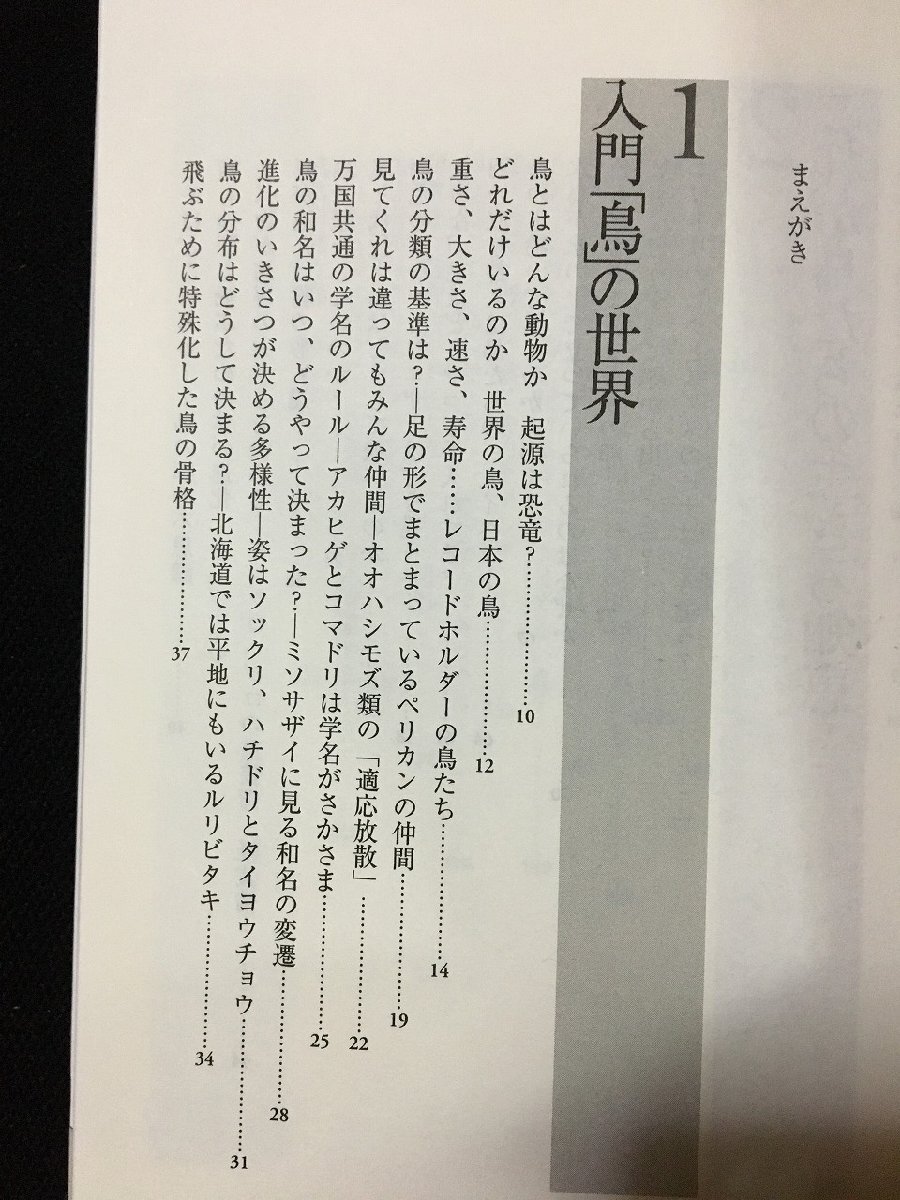 まえがき
1
入門「鳥」の世界
鳥とはどんな動物か　起源は恐竜?………………10
どれだけいるのか　世界の鳥、日本の鳥………………12
重さ、大きさ、速さ、寿命……レコードホルダーの鳥たち………………14
鳥の分類の基準は?―足の形でまとまっているペリカンの仲間………………19
見てくれは違ってもみんな仲間―オオハシモズ類の「適応放散」………………22
万国共通の学名のルール―アカヒゲとコマドリは学名がさかさま………………25
鳥の和名はいつ、どうやって決まった?―ミソサザイに見る和名の変遷………………28
進化のいきさつが決める多様性―姿はソックリ、ハチドリとタイヨウチョウ………………31
鳥の分布はどうして決まる?―北海道では平地にもいるルリビタキ………………34
飛ぶために特殊化した鳥の骨格………………37